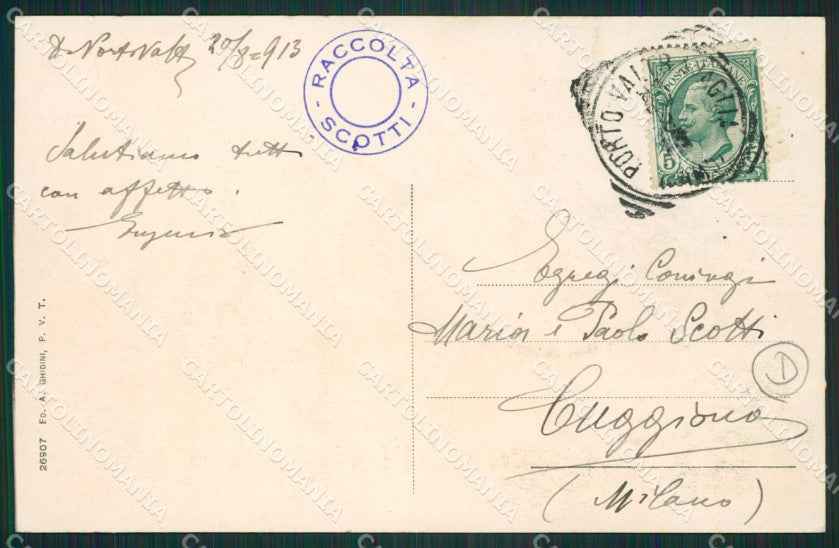 20/8=913
RACCOLTA
SCOTTI
Salutiamo tutti
con affetto.
PORTO VAL
POSTE ITALIANE
5
Egregi Coniugi
Maria e Paolo Scotti
Cuggiono
(Milano)
D
26907 ED. A. GHIDINI, P. V. T.
CARTOLINOMANIA